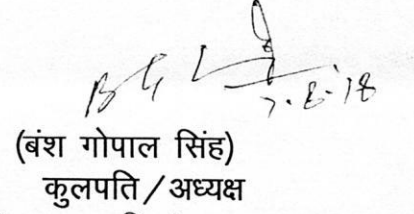 7.8.18
(बंश गोपाल सिंह)
कुलपति / अध्यक्ष